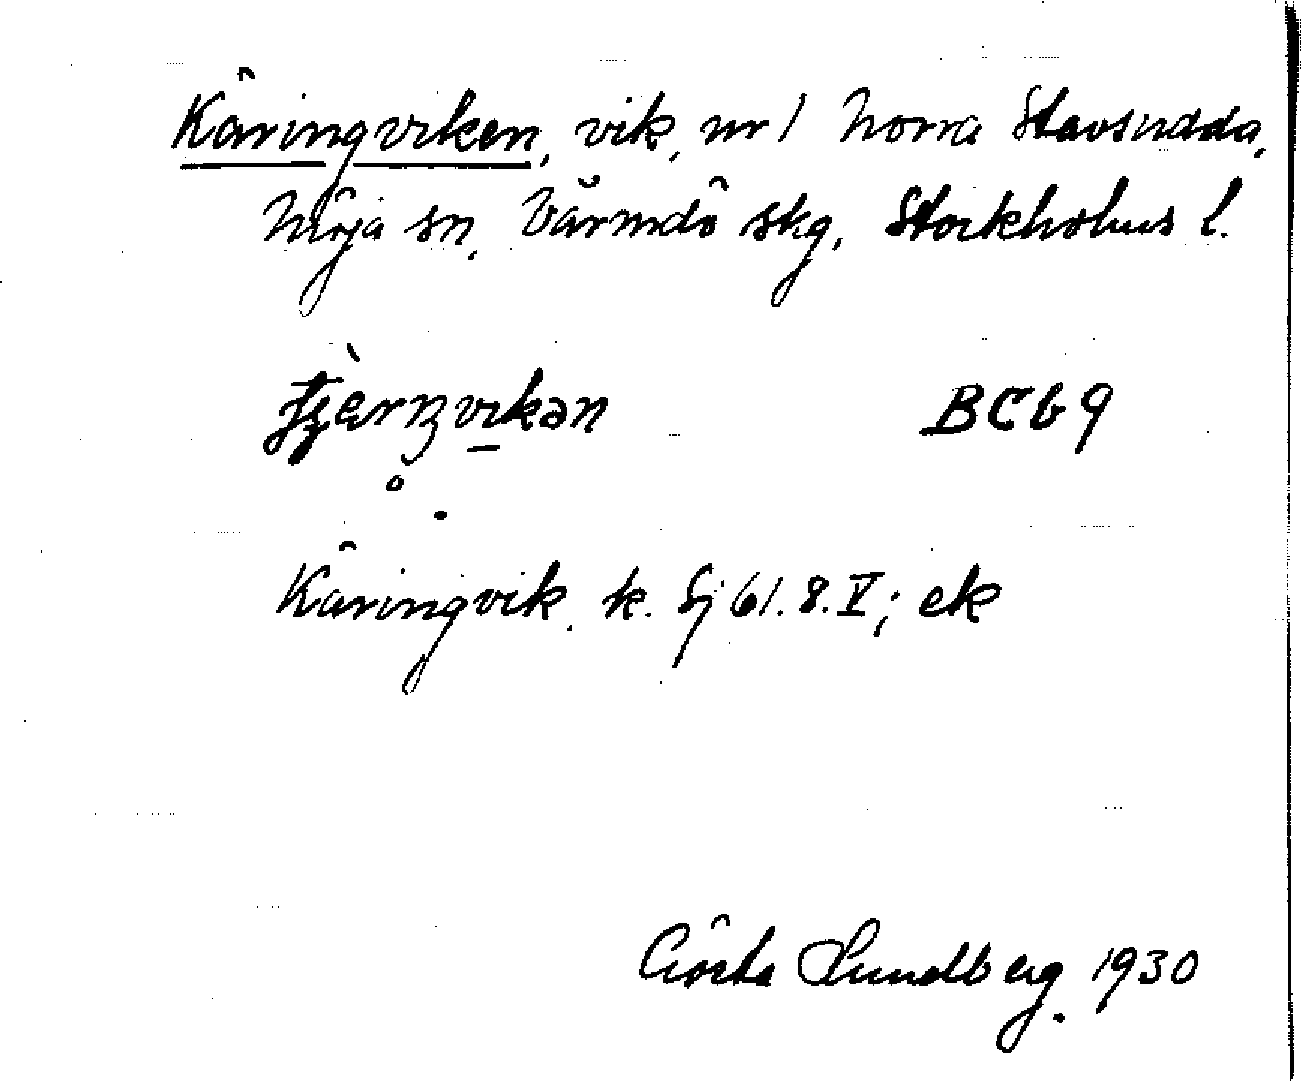 Käringviken, vik, nr 1 Norra Stavsudda,
Möja sn, Värmdö skg, Stockholms l.
BCG9
Käringvik. k. Sj 61. 8. V; ek
Gösta Sundberg. 1930